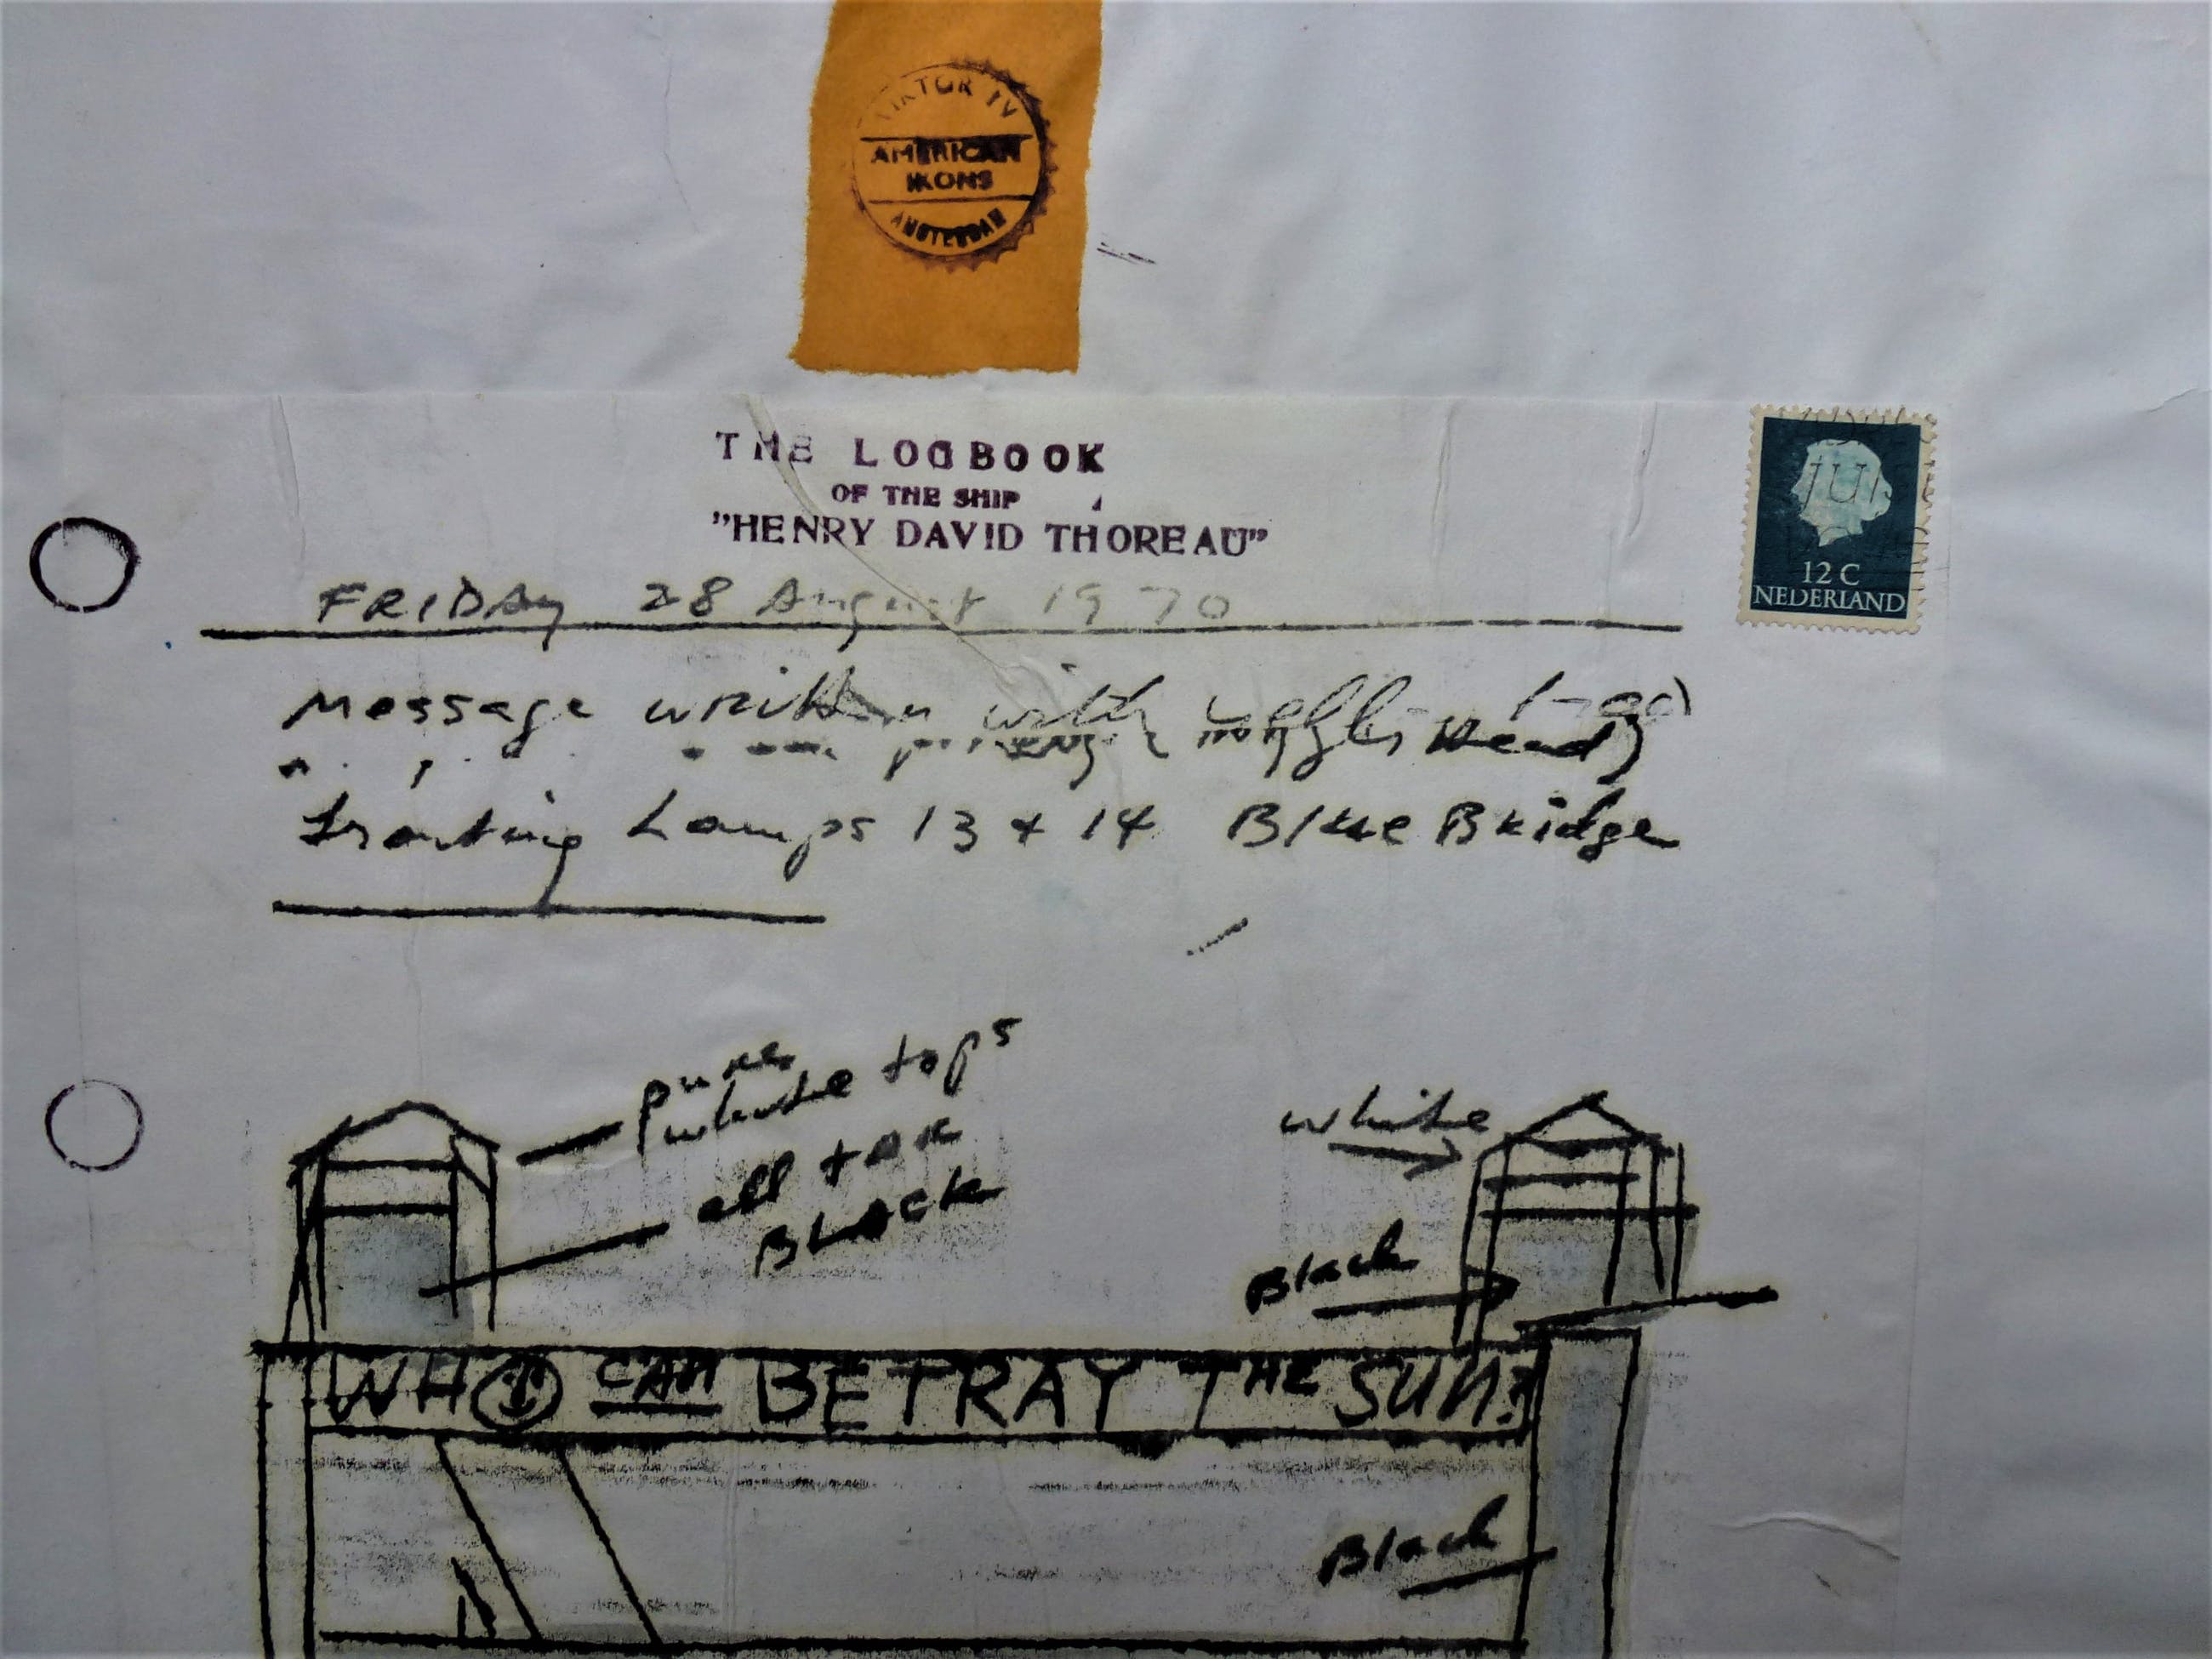 VIKTOR IV
AMERICAN
IKONS
AMSTERDAM
THE LOGBOOK
OF THE SHIP
"HENRY DAVID THOREAU"
JUI
12 C
NEDERLAND
FRIDAY 28 August 1970
Message written with
Lamps 13 + 14 Blue Bridge
pure
white tops
all tar
BLACK
white
Black
WHO CAN BETRAY THE SUN?
Black